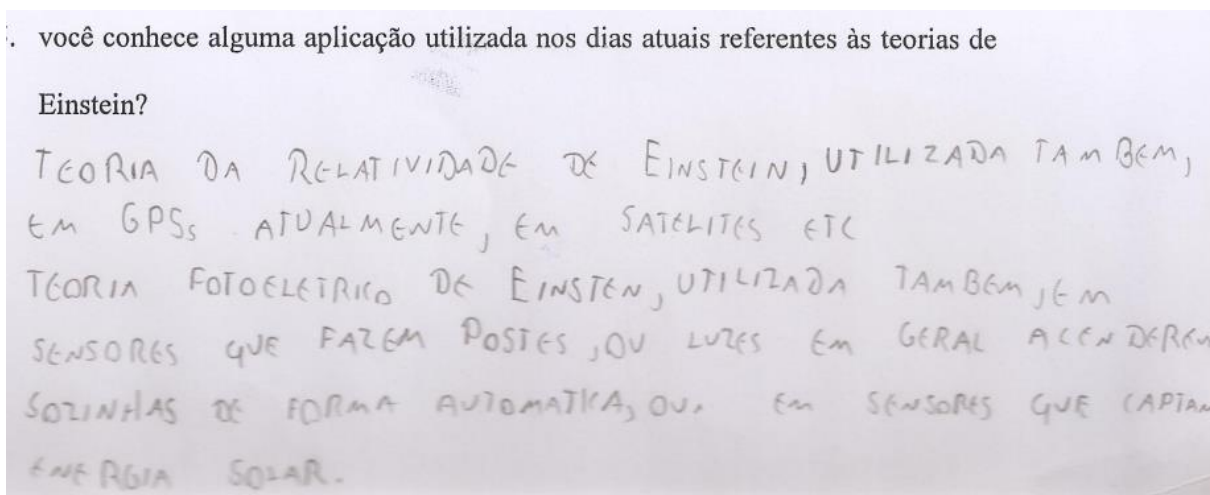 . você conhece alguma aplicação utilizada nos dias atuais referentes às teorias de
Einstein?
TEORIA DA RELATIVIDADE DE EINSTEIN, UTILIZADA TAMBEM,
EM GPSs ATUALMENTE, EM SATELITES ETC
TEORIA FOTOELETRICO DE EINSTEN, UTILIZADA TAMBEM, EM
SENSORES QUE FAZEM POSTES, OU LUZES EM GERAL ACENDEREM
SOZINHAS DE FORMA AUTOMATICA, OU, EM SENSORES QUE CAPTAM
ENERGIA SOLAR.